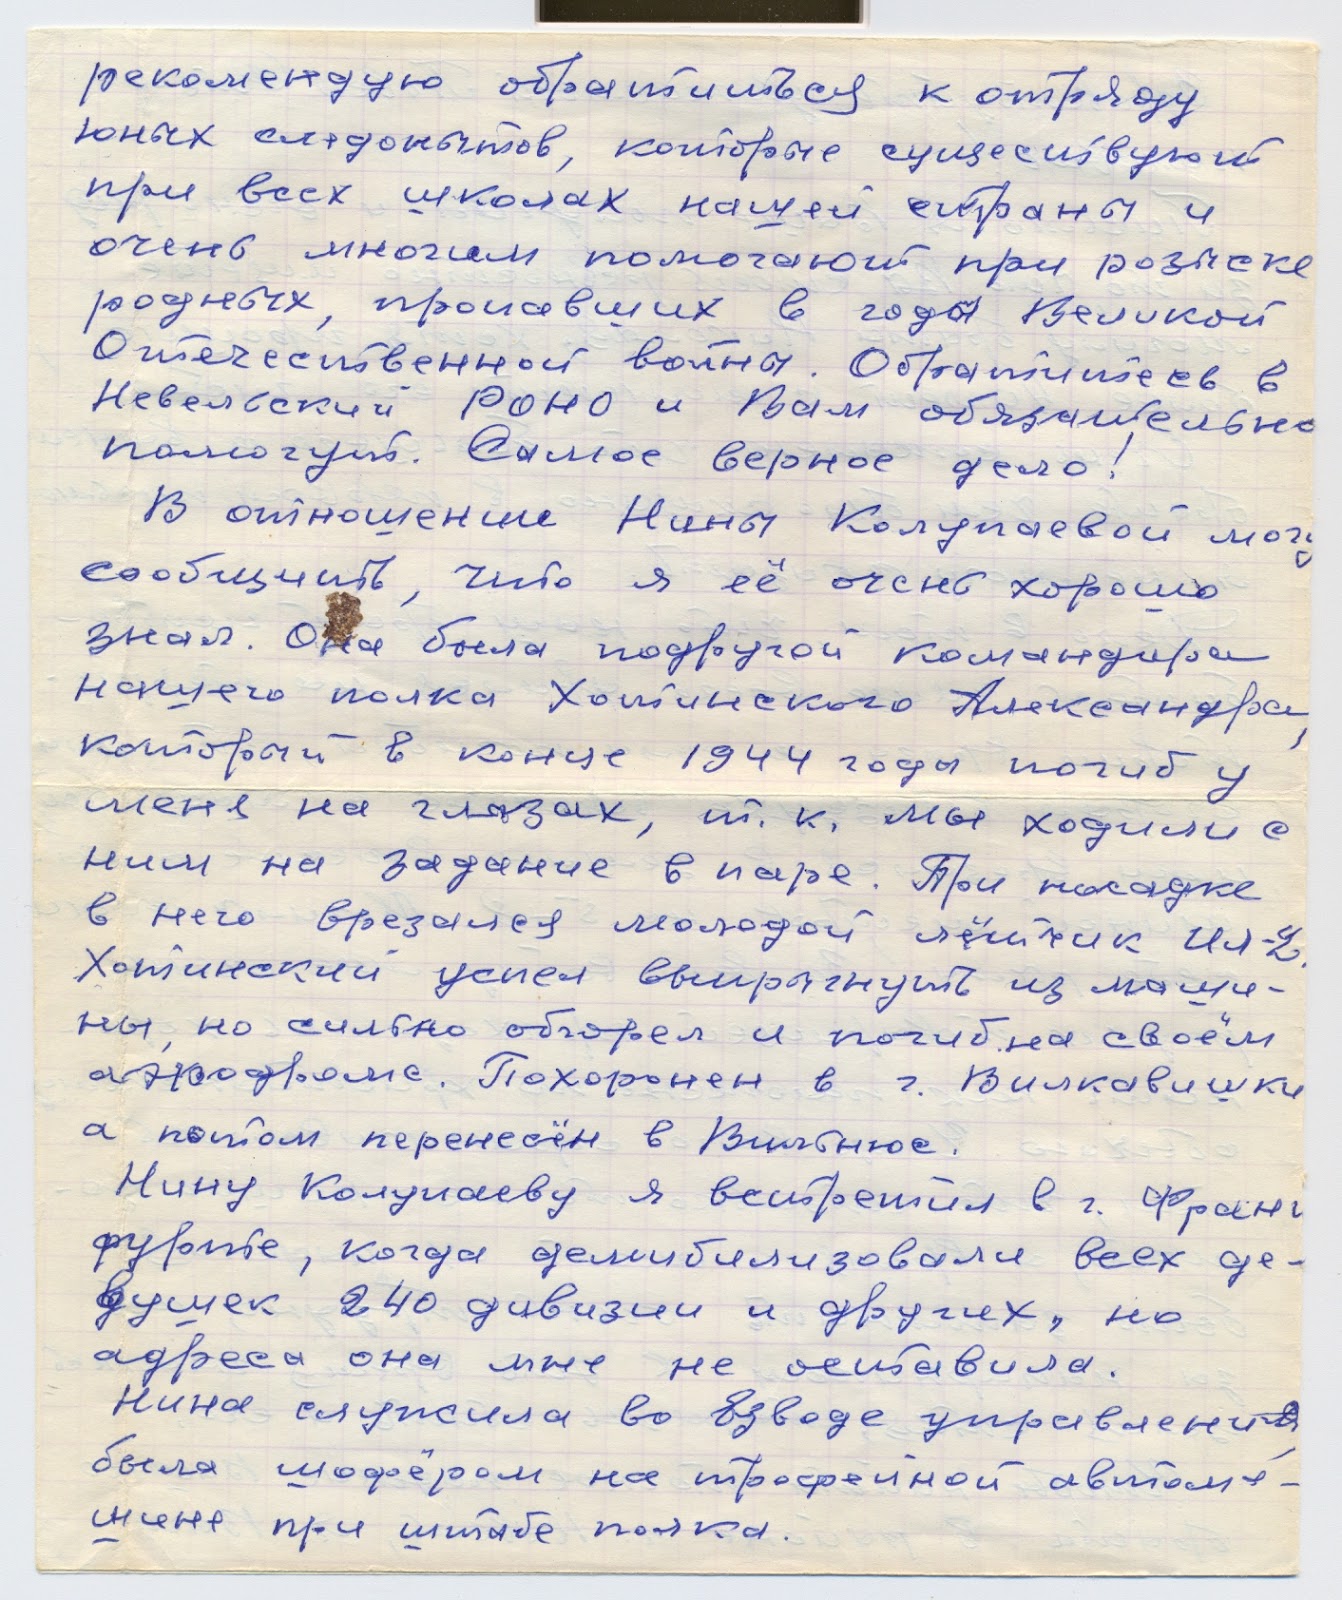 рекомендую обратиться к отряду
юных следопытов, которые существуют
при всех школах нашей страны и
очень многим помогают при розыске
родных, пропавших в годы Великой
Отечественной войны. Обратитесь в
Невельский РОНО и Вам обязательно
помогут. Самое верное дело!
В отношении Нины Колупаевой могу
сообщить, что я её очень хорошо
знал. Она была подругой командира
нашего полка Хотинского Александра,
который в конце 1944 годы погиб у
меня на глазах, т.к. мы ходили с
ним на задание в паре. При посадке
в него врезался молодой лётчик Ил-2.
Хотинский успел выпрыгнуть из маши-
ны, но сильно обгорел и погиб на своём
аэродроме. Похоронен в г. Вилкавишки
а потом перенесён в Вильнюс.
Нину Колупаеву я встретил в г. Франк
фурте, когда демибилизовали всех де-
вушек 240 дивизии и других, но
адреса она мне не оставила.
Нина служила во взводе управления,
была шофёром на трофейной автома-
шине при штабе полка.